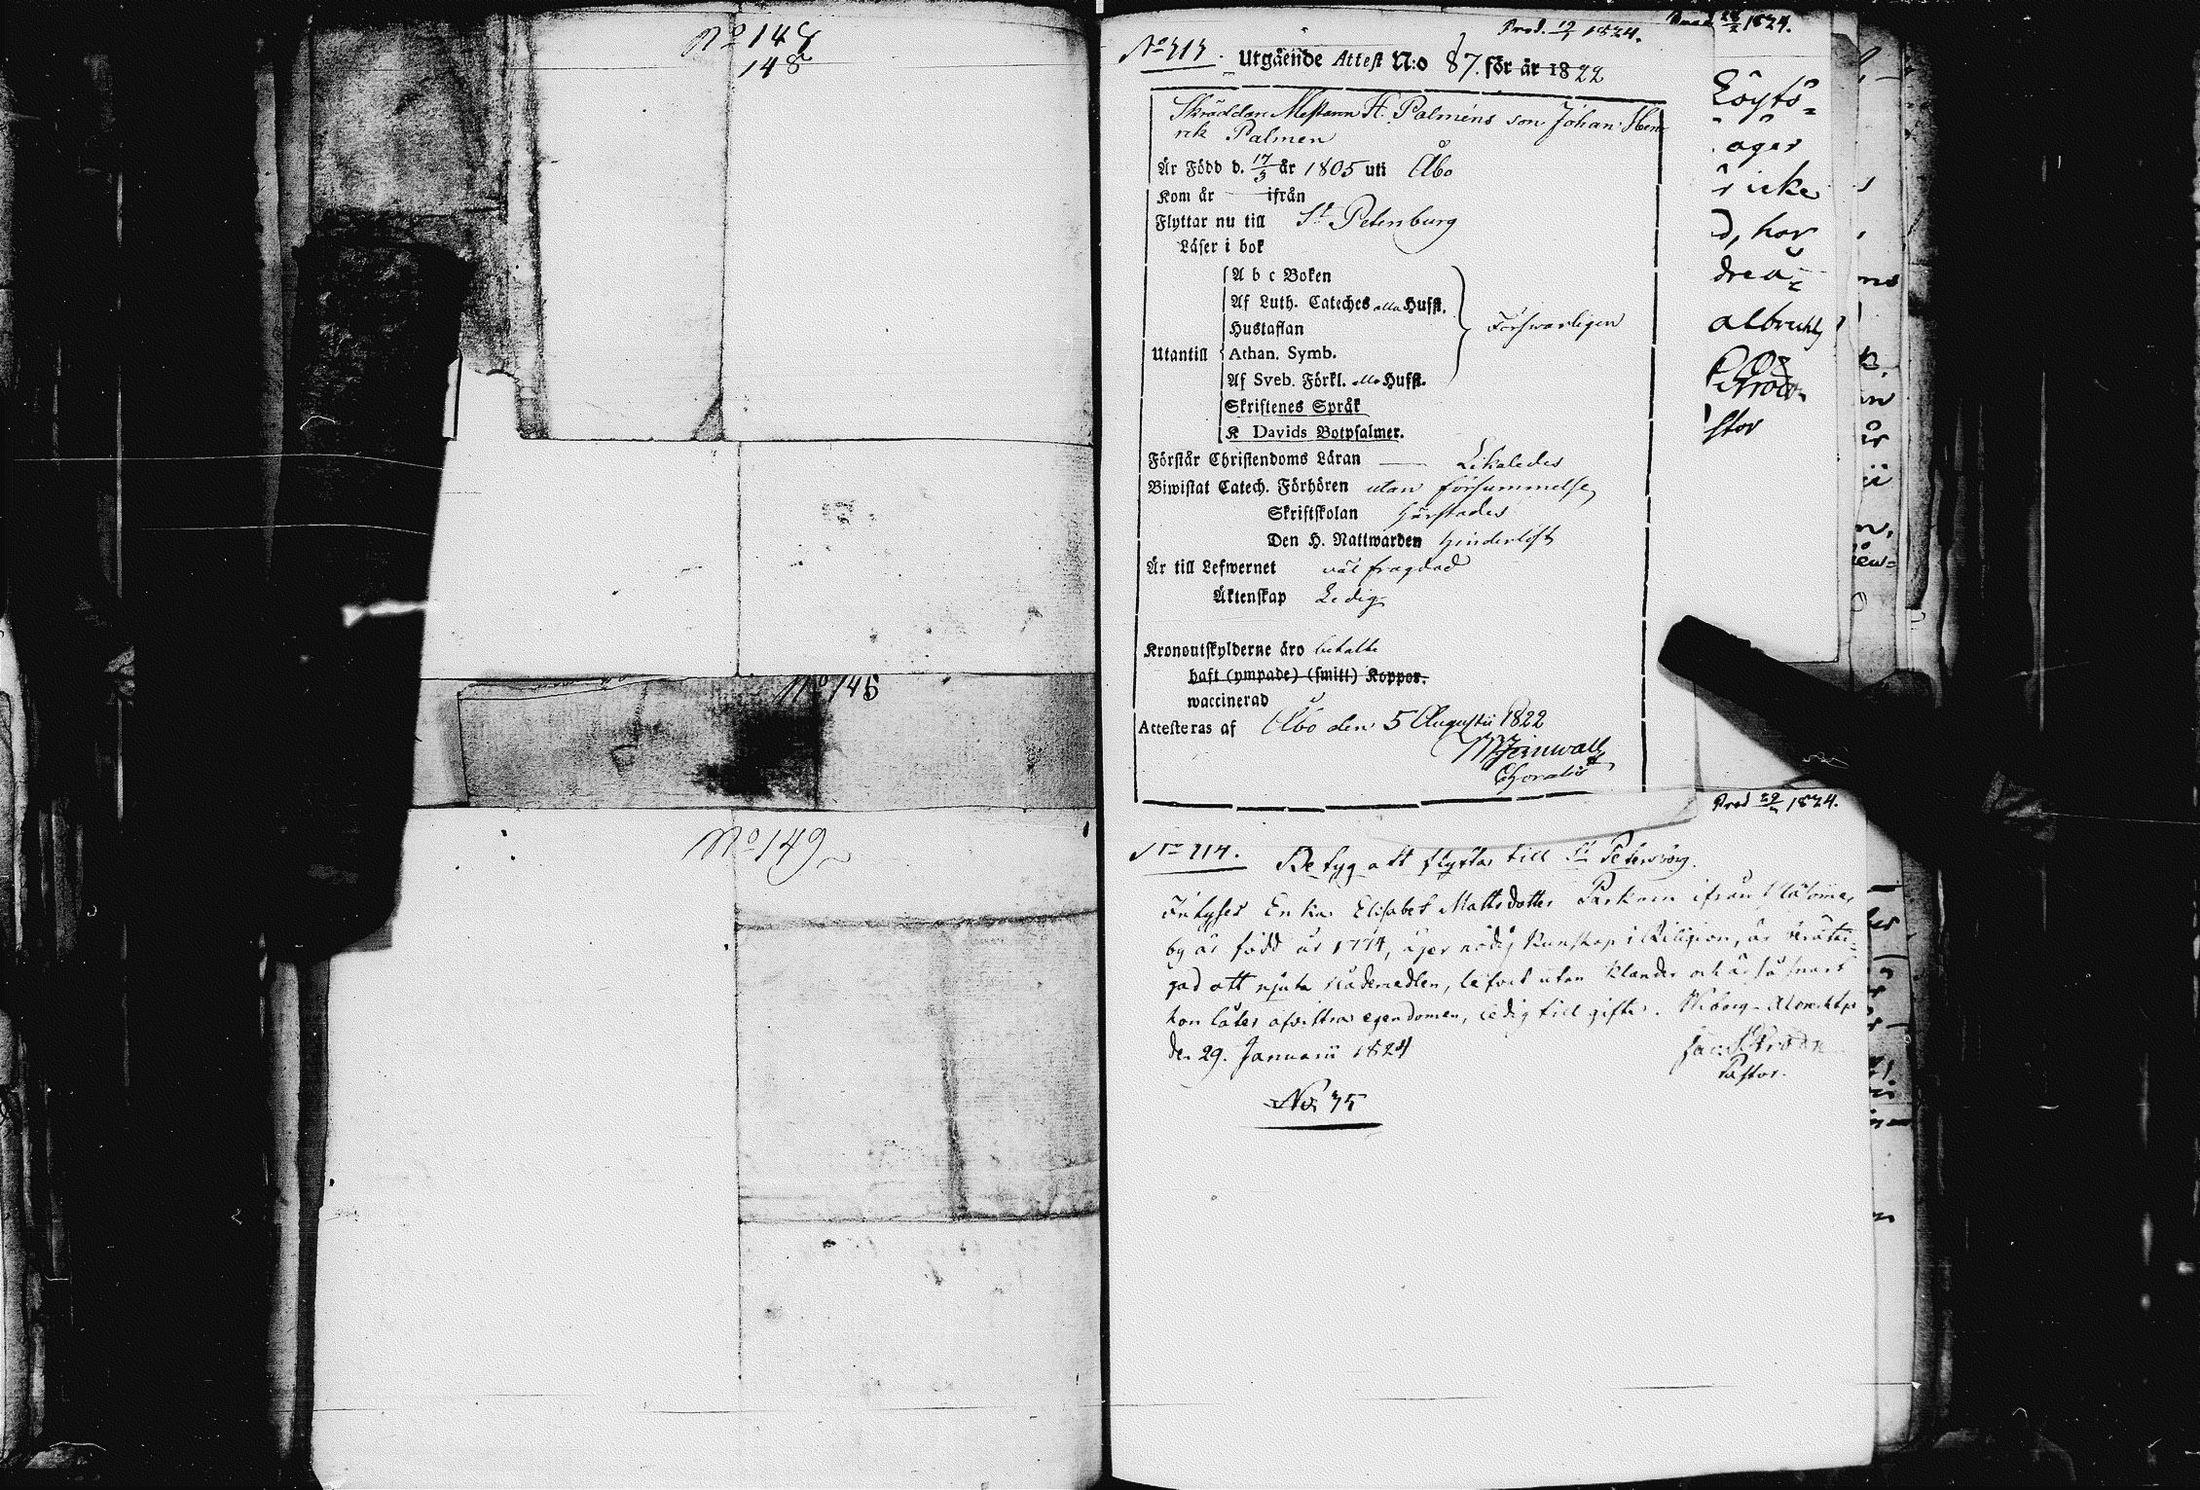 No 148
148
No 145
No 146
Prod. 19/1 1824.
No 313.
Utgående Attest N:o 87. för år 1822
Skräddare Mestaren H. Palméns son Johan Hen-
rik Palmen
Är Född d. 17/3 år 1805 uti Åbo
Kom år — ifrån
Flyttar nu till St Petersburg
Läser i bok
A b c Boken
Af Luth. Cateches alla Hufst.
Hustaflan
Utantill Athan. Symb.
Af Sveb. Förkl. alla Hufst.
Skriftenes Språk
K Davids Botpsalmer.
Förswarligen
Förstår Christendoms Läran — Likaledes
Biwistat Catech. Förhören utan försummelse
Skriftskolan härstädes
Den H. Nattwarden hinderlöst
Är till Lefwernet väl frägdad
Äktenskap Ledig
Kronoutskylderne äro betalte
haft (ympade) (smitt) Koppor.
waccinerad
Attesteras af Åbo den 5 Augusti 1822
1824.
äger
icke
har
albrecht
stor
Prod 29/ 1824.
No 314.
Betyg att flytta till St Petersburg.
Intyges Enkan Elisabet Mattsdotter Parkain ifrån
by är född år 1774, äger nödig kunskap i Religion, är berätti-
gad att njuta nådemedlen, lefvat utan klander och är så snart
hon låter afvittra egendomen, ledig till gifte. Wiborg
den 29. Januarii 1824
Pastor.
No 35